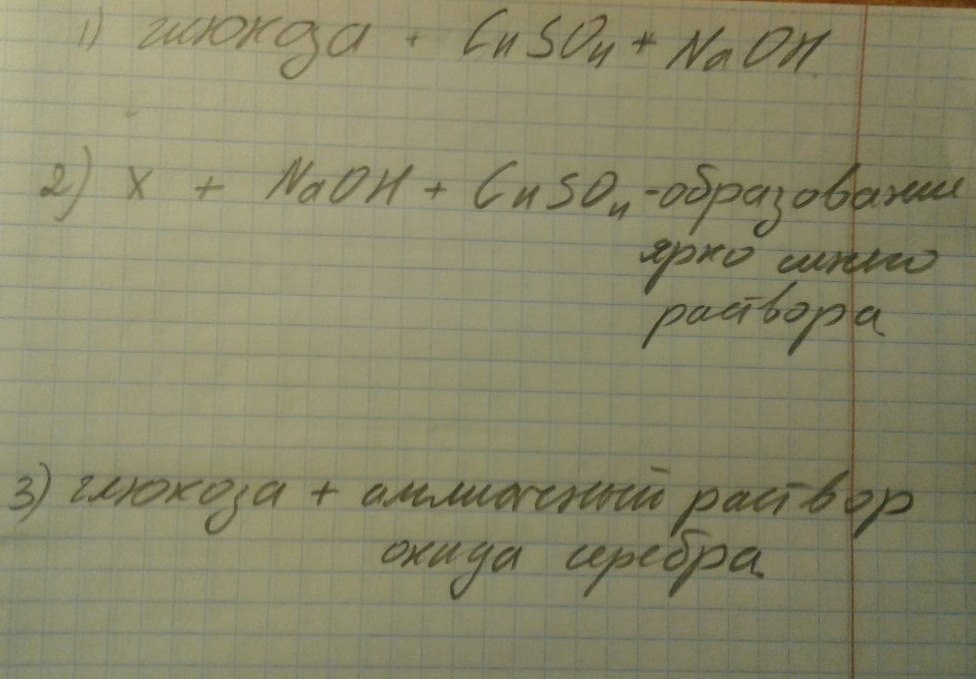 1) глюкоза + CuSO4 + NaOH
2) x + NaOH + CuSO4 - образование
ярко синего
раствора
3) глюкоза + аммиачный раствор
оксида серебра